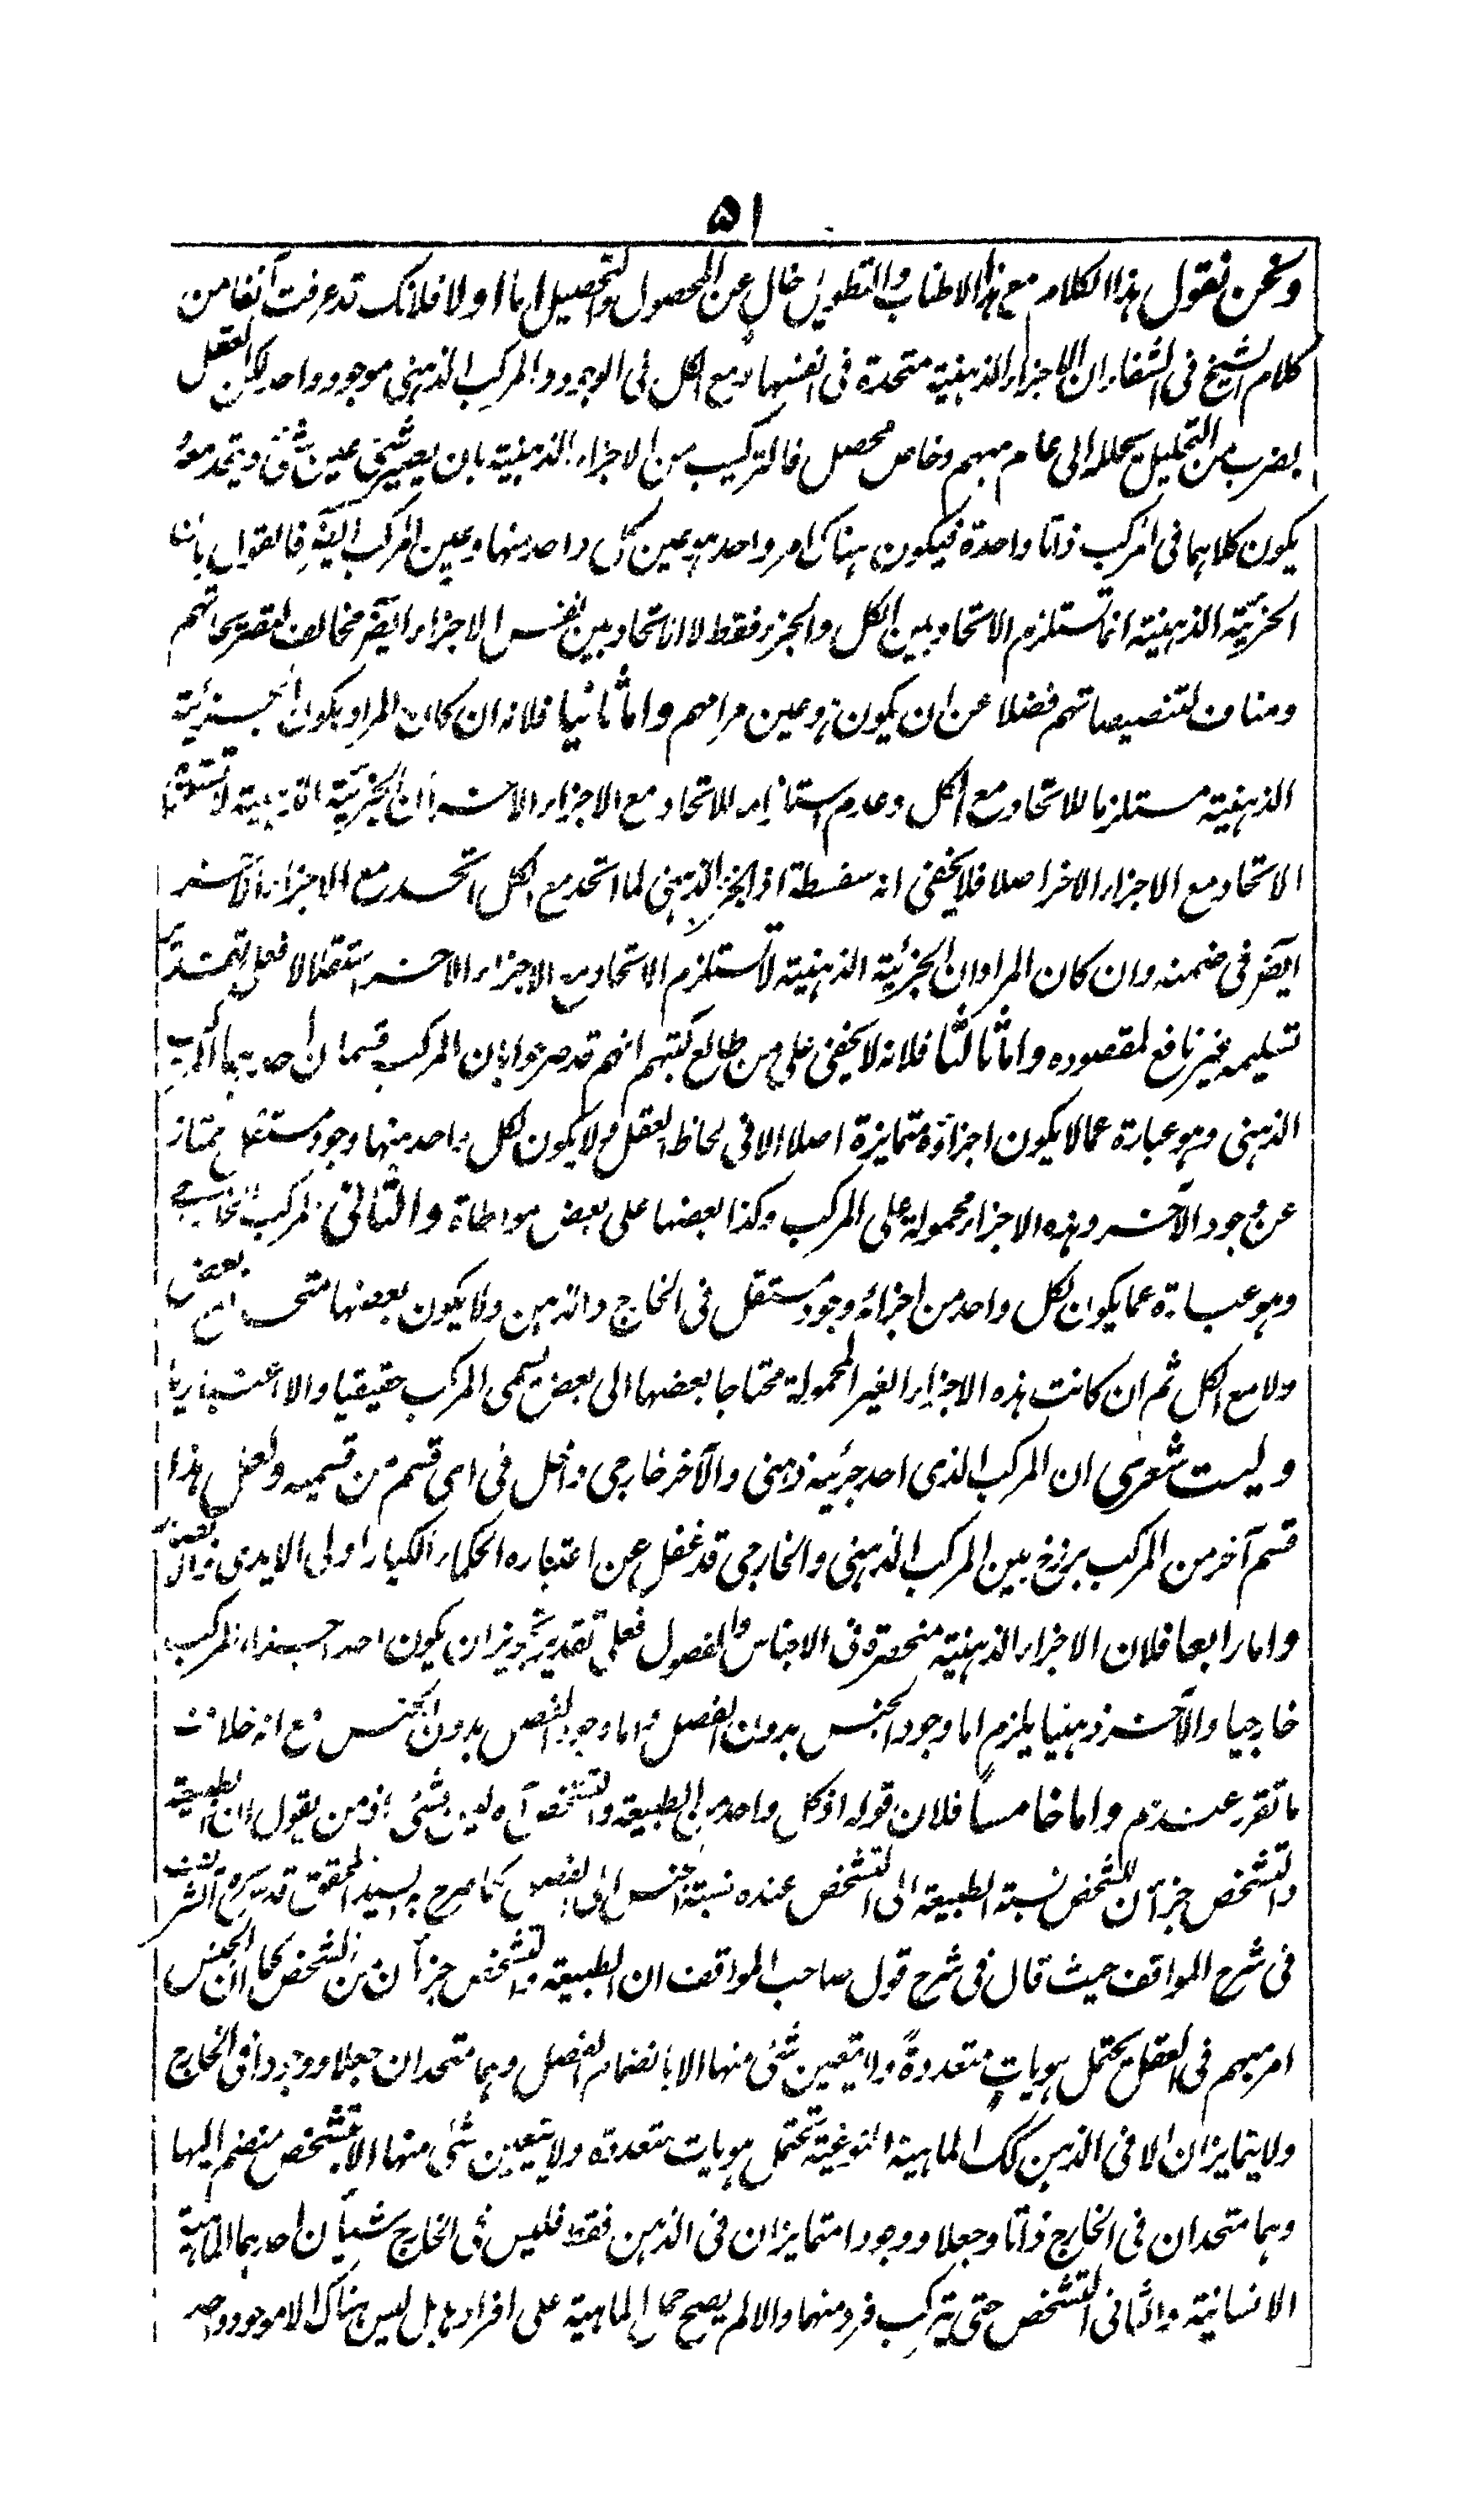 ۵۱
ونحن نقول هذا الكلام مع هذا الاطناب والتطويل خال عن المحصول والتحصيل اما اولا فلانك قد عرفت آنفا من
كلام الشيخ فى الشفاء ان الاجزاء الذهنية متحدة فى انفسها ومع الكل فى الوجود والمركب الذهنى موجود واحد لكن العقل
بضرب من التحليل يحلله الى عام مبهم وخاص محصل فالتركيب من الاجزاء الذهنية بان يصير شئ عين شئ ويتحد معه
يكون كلاهما فى المركب ذاتا واحدة فيكون هناك امر واحد هو عين كل واحد منها وعين المركب ايضا فالقول بان
الجزئية الذهنية انما تستلزم الاتحاد بين الكل والجزء فقط لا الاتحاد بين نفس الاجزاء ايضا مخالف لتصريحاتهم
ومناف لتنصيصاتهم فضلا عن ان يكون هو عين مرامهم واما ثانيا فلانه ان كان المراد بكون الجزئية
الذهنية مستلزما للاتحاد مع الكل وعدم استلزامه للاتحاد مع الاجزاء الاخر ان الجزئية الذهنية لا تستلزم
الاتحاد مع الاجزاء الاخر اصلا فلا يخفى انه سفسطة اذ الجزء الذهنى لما اتحد مع الكل اتحد مع الاجزاء الآخر
ايضا فى ضمنه وان كان المراد ان الجزئية الذهنية لا تستلزم الاتحاد مع الاجزاء الاخر استقلالا فعلى تقدير
تسليمه غير نافع لمقصوده واما ثالثا فلانه لا يخفى على من طالع كتبهم انهم قد صرحوا بان المركب قسمان احدهما المركب
الذهنى وهو عبارة عما لا يكون اجزاؤه متمايزة اصلا الا فى لحاظ العقل ولا يكون لكل واحد منها وجود مستقل ممتاز
عن وجود الآخر وهذه الاجزاء محمولة على المركب وكذا بعضها على بعض مواطاة والثانى المركب الخارجى
وهو عبارة عما يكون لكل واحد من اجزائه وجود مستقل فى الخارج والذهن ولا يكون بعضها متحدا مع بعض
ولا مع الكل ثم ان كانت هذه الاجزاء الغير المحمولة محتاجا بعضها الى بعض يسمى المركب حقيقيا والا اعتباريا
وليت شعرى ان المركب الذى احد جزئيه ذهنى والآخر خارجى داخل فى اى قسم من قسميه ولعل هذا
قسم آخر من المركب برزخ بين المركب الذهنى والخارجى قد غفل عن اعتباره الحكماء الكبار اولى الايدى والابصار
واما رابعا فلان الاجزاء الذهنية منحصرة فى الاجناس والفصول فعلى تقدير تجويز ان يكون احد اجزاء المركب
خارجيا والآخر ذهنيا يلزم اما وجود الجنس بدون الفصل واما وجود الفصل بدون الجنس مع انه خلاف
ما تقرر عندهم واما خامسا فلان قوله اذ كل واحد من الطبيعة والتشخص آه ليس بشئ اذ من يقول ان الطبيعة
والتشخص جزآن للشخص نسبة الطبيعة الى التشخص عنده نسبة الجنس الى الفصل كما صرح به السيد المحقق قدس سره الشريف
فى شرح المواقف حيث قال فى شرح قول صاحب المواقف ان الطبيعة والتشخص جزآن من الشخص كما ان الجنس
امر مبهم فى العقل يحتمل هويات متعددة ولا يتعين شئ منها الا بانضمام الفصل وهما متحدان جعلا ووجودا فى الخارج
ولا يتمايزان الا فى الذهن كك الماهية النوعية تحتمل هويات متعددة ولا يتعين شئ منها الا بتشخص منضم اليها
وهما متحدان فى الخارج ذاتا وجعلا ووجودا متمايزان فى الذهن فقط فليس فى الخارج شيآن احدهما الماهية
الانسانية والثانى التشخص حتى يتركب فرد منهما والا لم يصح حمل الماهية على افرادها بل ليس هناك الا موجود واحد